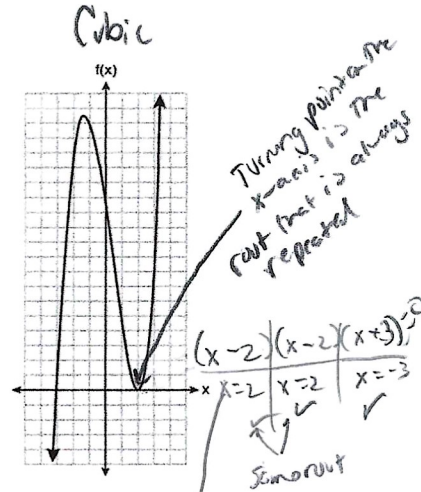 Cubic
f(x)
Turning point on the
x-axis is the
root that is always
repeated
(x-2)(x-2)(x+3)=0
x
x=2 x=2 x=-3
Same root